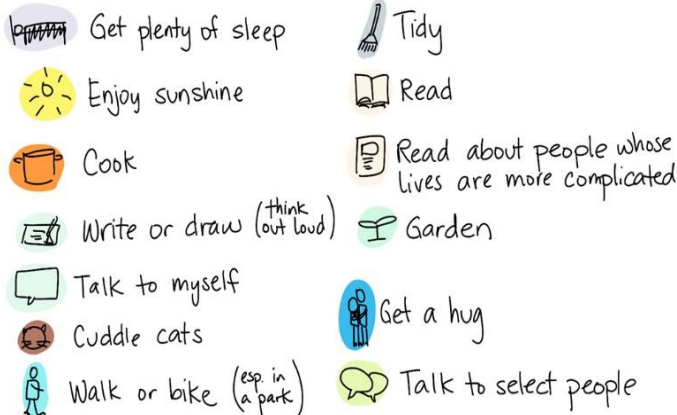 Get plenty of sleep
Enjoy sunshine
Cook
Write or draw (think out loud)
Talk to myself
Cuddle cats
Walk or bike (esp. in a park)
Tidy
Read
Read about people whose
lives are more complicated
Garden
Get a hug
Talk to select people